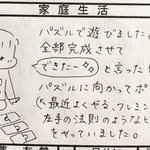 家庭生活
パズルで遊びました。
全部完成させて
できたー
と言った
パズルに向かってポ
最近よくやる、フレミン
左手の法則のようなピ
をやっていました。